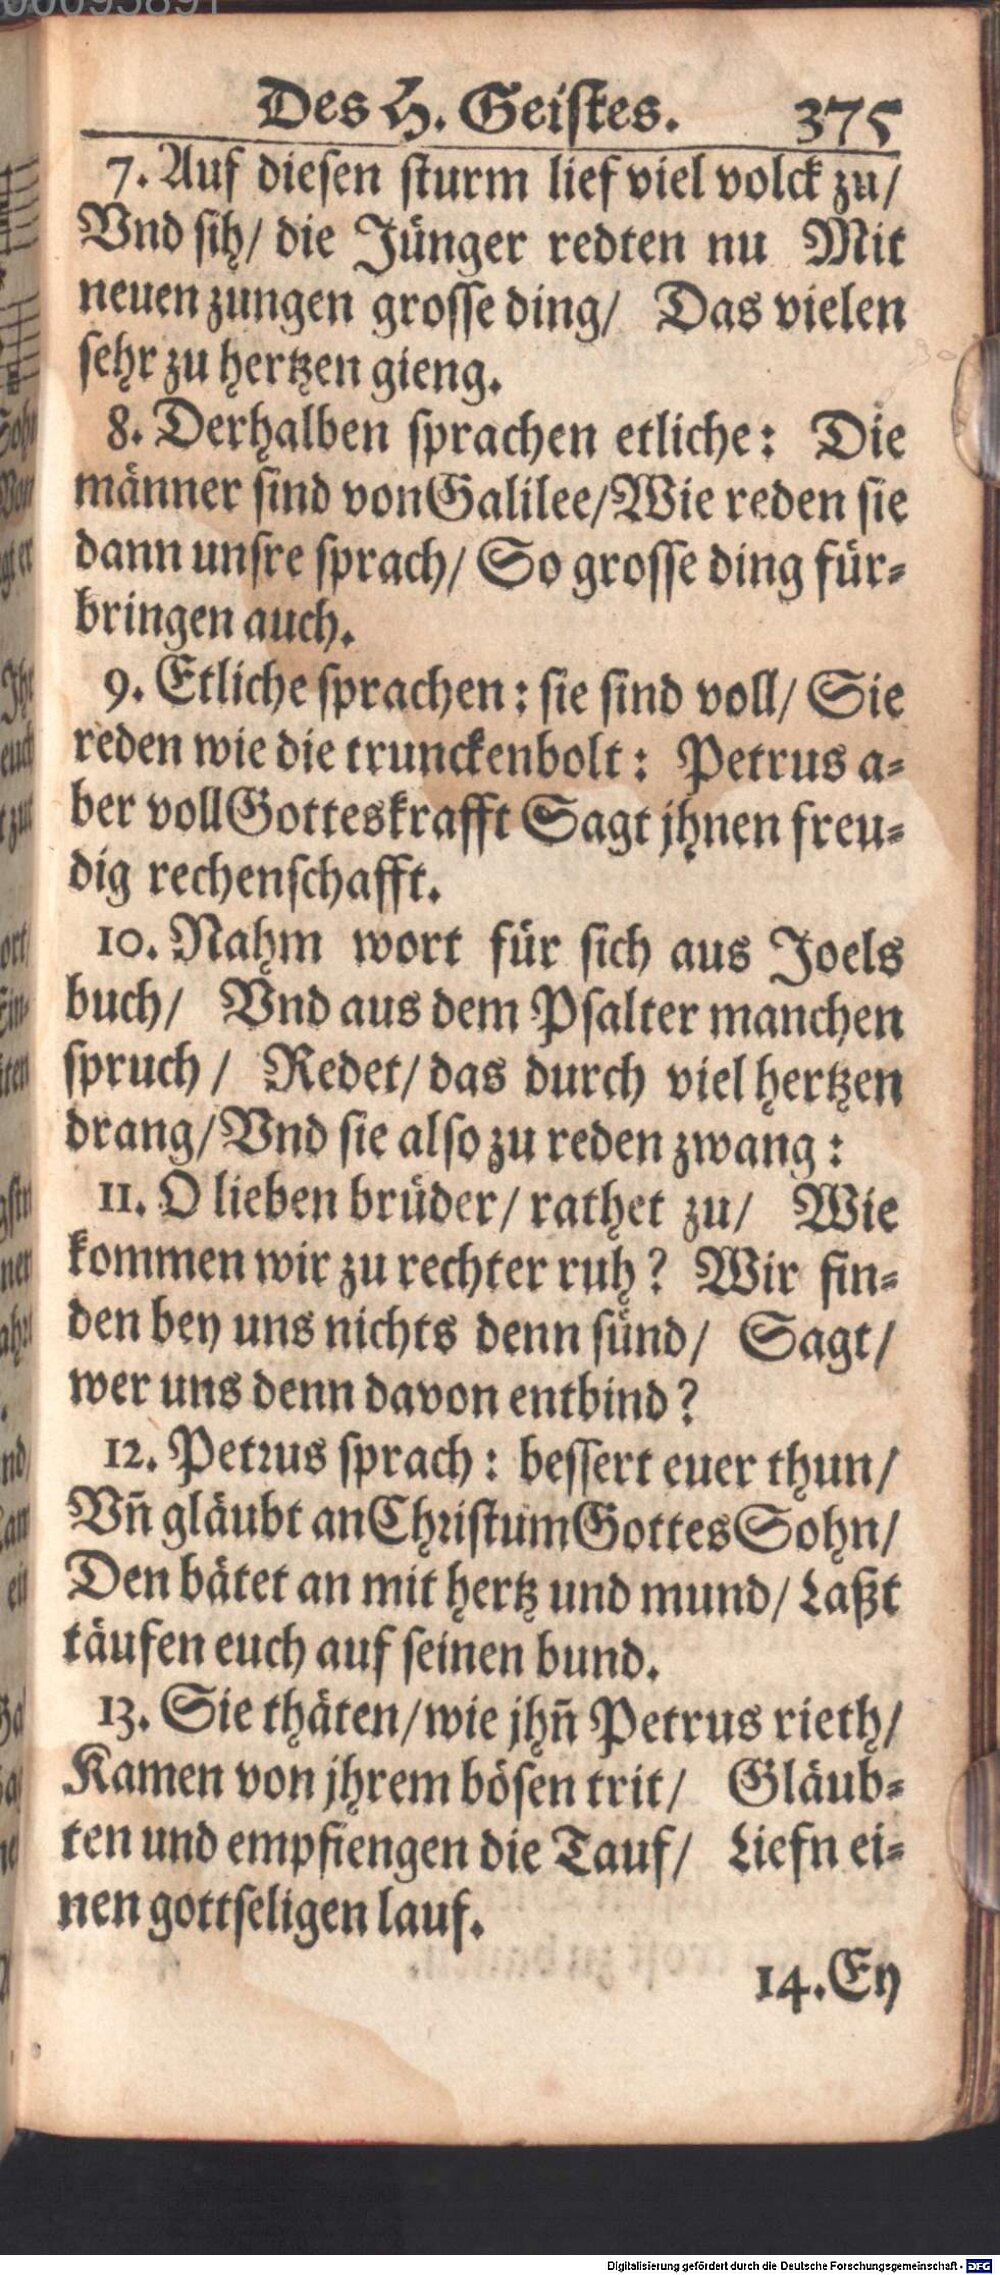 Des H. Geistes. 375
7. Auf diesen sturm lief viel volck zu/
Vnd sih/ die Jünger redten nu Mit
neuen zungen grosse ding/ Das vielen
sehr zu hertzen gieng.
8. Derhalben sprachen etliche: Die
männer sind von Galilee/Wie reden sie
dann unsre sprach/ So grosse ding für-
bringen auch.
9. Etliche sprachen: sie sind voll/ Sie
reden wie die trunckenbolt: Petrus a-
ber voll Gottes krafft Sagt jhnen freu-
dig rechenschafft.
10. Nahm wort für sich aus Joels
buch/ Vnd aus dem Psalter manchen
spruch / Redet/ das durch viel hertzen
drang/Vnd sie also zu reden zwang:
11. O lieben brüder/ rathet zu/ Wie
kommen wir zu rechter ruh? Wir fin-
den bey uns nichts denn sünd/ Sagt/
wer uns denn davon entbind?
12. Petrus sprach: bessert euer thun/
Vñ gläubt an Christum Gottes Sohn/
Den bätet an mit hertz und mund/ Laßt
täufen euch auf seinen bund.
13. Sie thäten/wie jhñ Petrus rieth/
Kamen von jhrem bösen trit/ Gläub-
ten und empfiengen die Tauf/ Liefn ei-
nen gottseligen lauf.
14. Ey
Digitalisierung gefördert durch die Deutsche Forschungsgemeinschaft - DFG